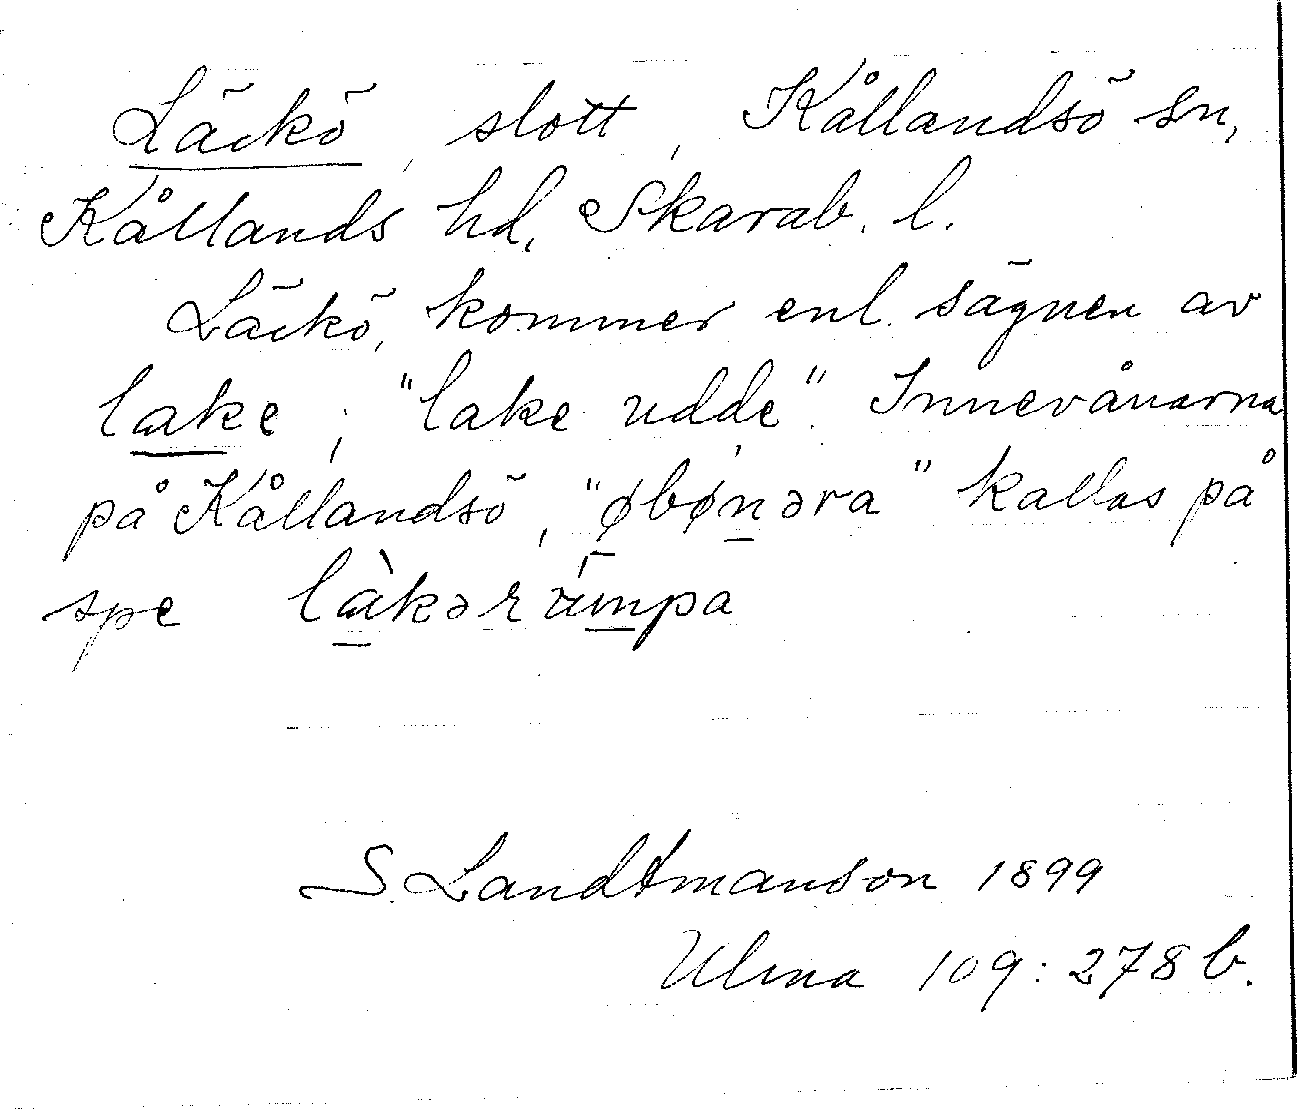 Läckö, slott, Kållandsö sn,
Kållands hd, Skarab. l.
Läckö, kommer enl. sägnen av
lake, "lake udde". Innevånarna
på Kållandsö, "øbønəra" kallas på
spe làkərùmpa
S. Landtmanson 1899
Ulma 109:278 b.